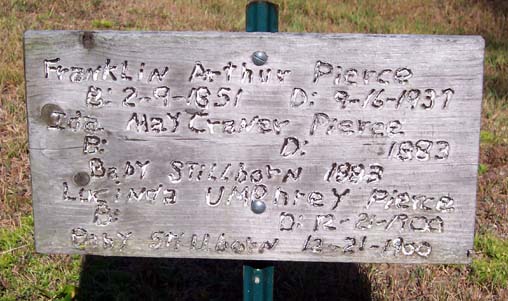 Franklin Arthur Pierce
B: 2-9-1851 D: 9-16-1937
Ida May Craner Pierce
B: D: 1883
Baby Stillborn 1883
Lucinda Umphrey Pierce
B: D: 12-21-1900
Baby Stillborn 12-21-1900